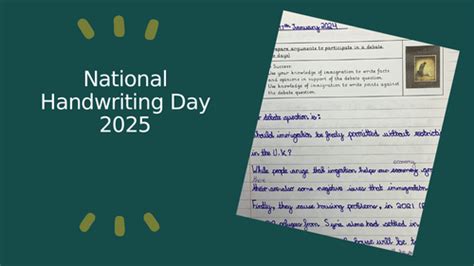 National
Handwriting Day
2025
th January 2024
prepare arguments to participate in a debate
days)
Success:
Use your knowledge of immigration to write facts
and opinions in support of the debate question.
Use knowledge of immigration to write points against
the debate question.
debate question is:
Should immigration be freely permitted without
in the U.K?
While people argue that immigration helps our economy
there are also some negative issues that
Firstly, they cause housing problems, in 2021
refugees from Syria alone had settled in
house will be